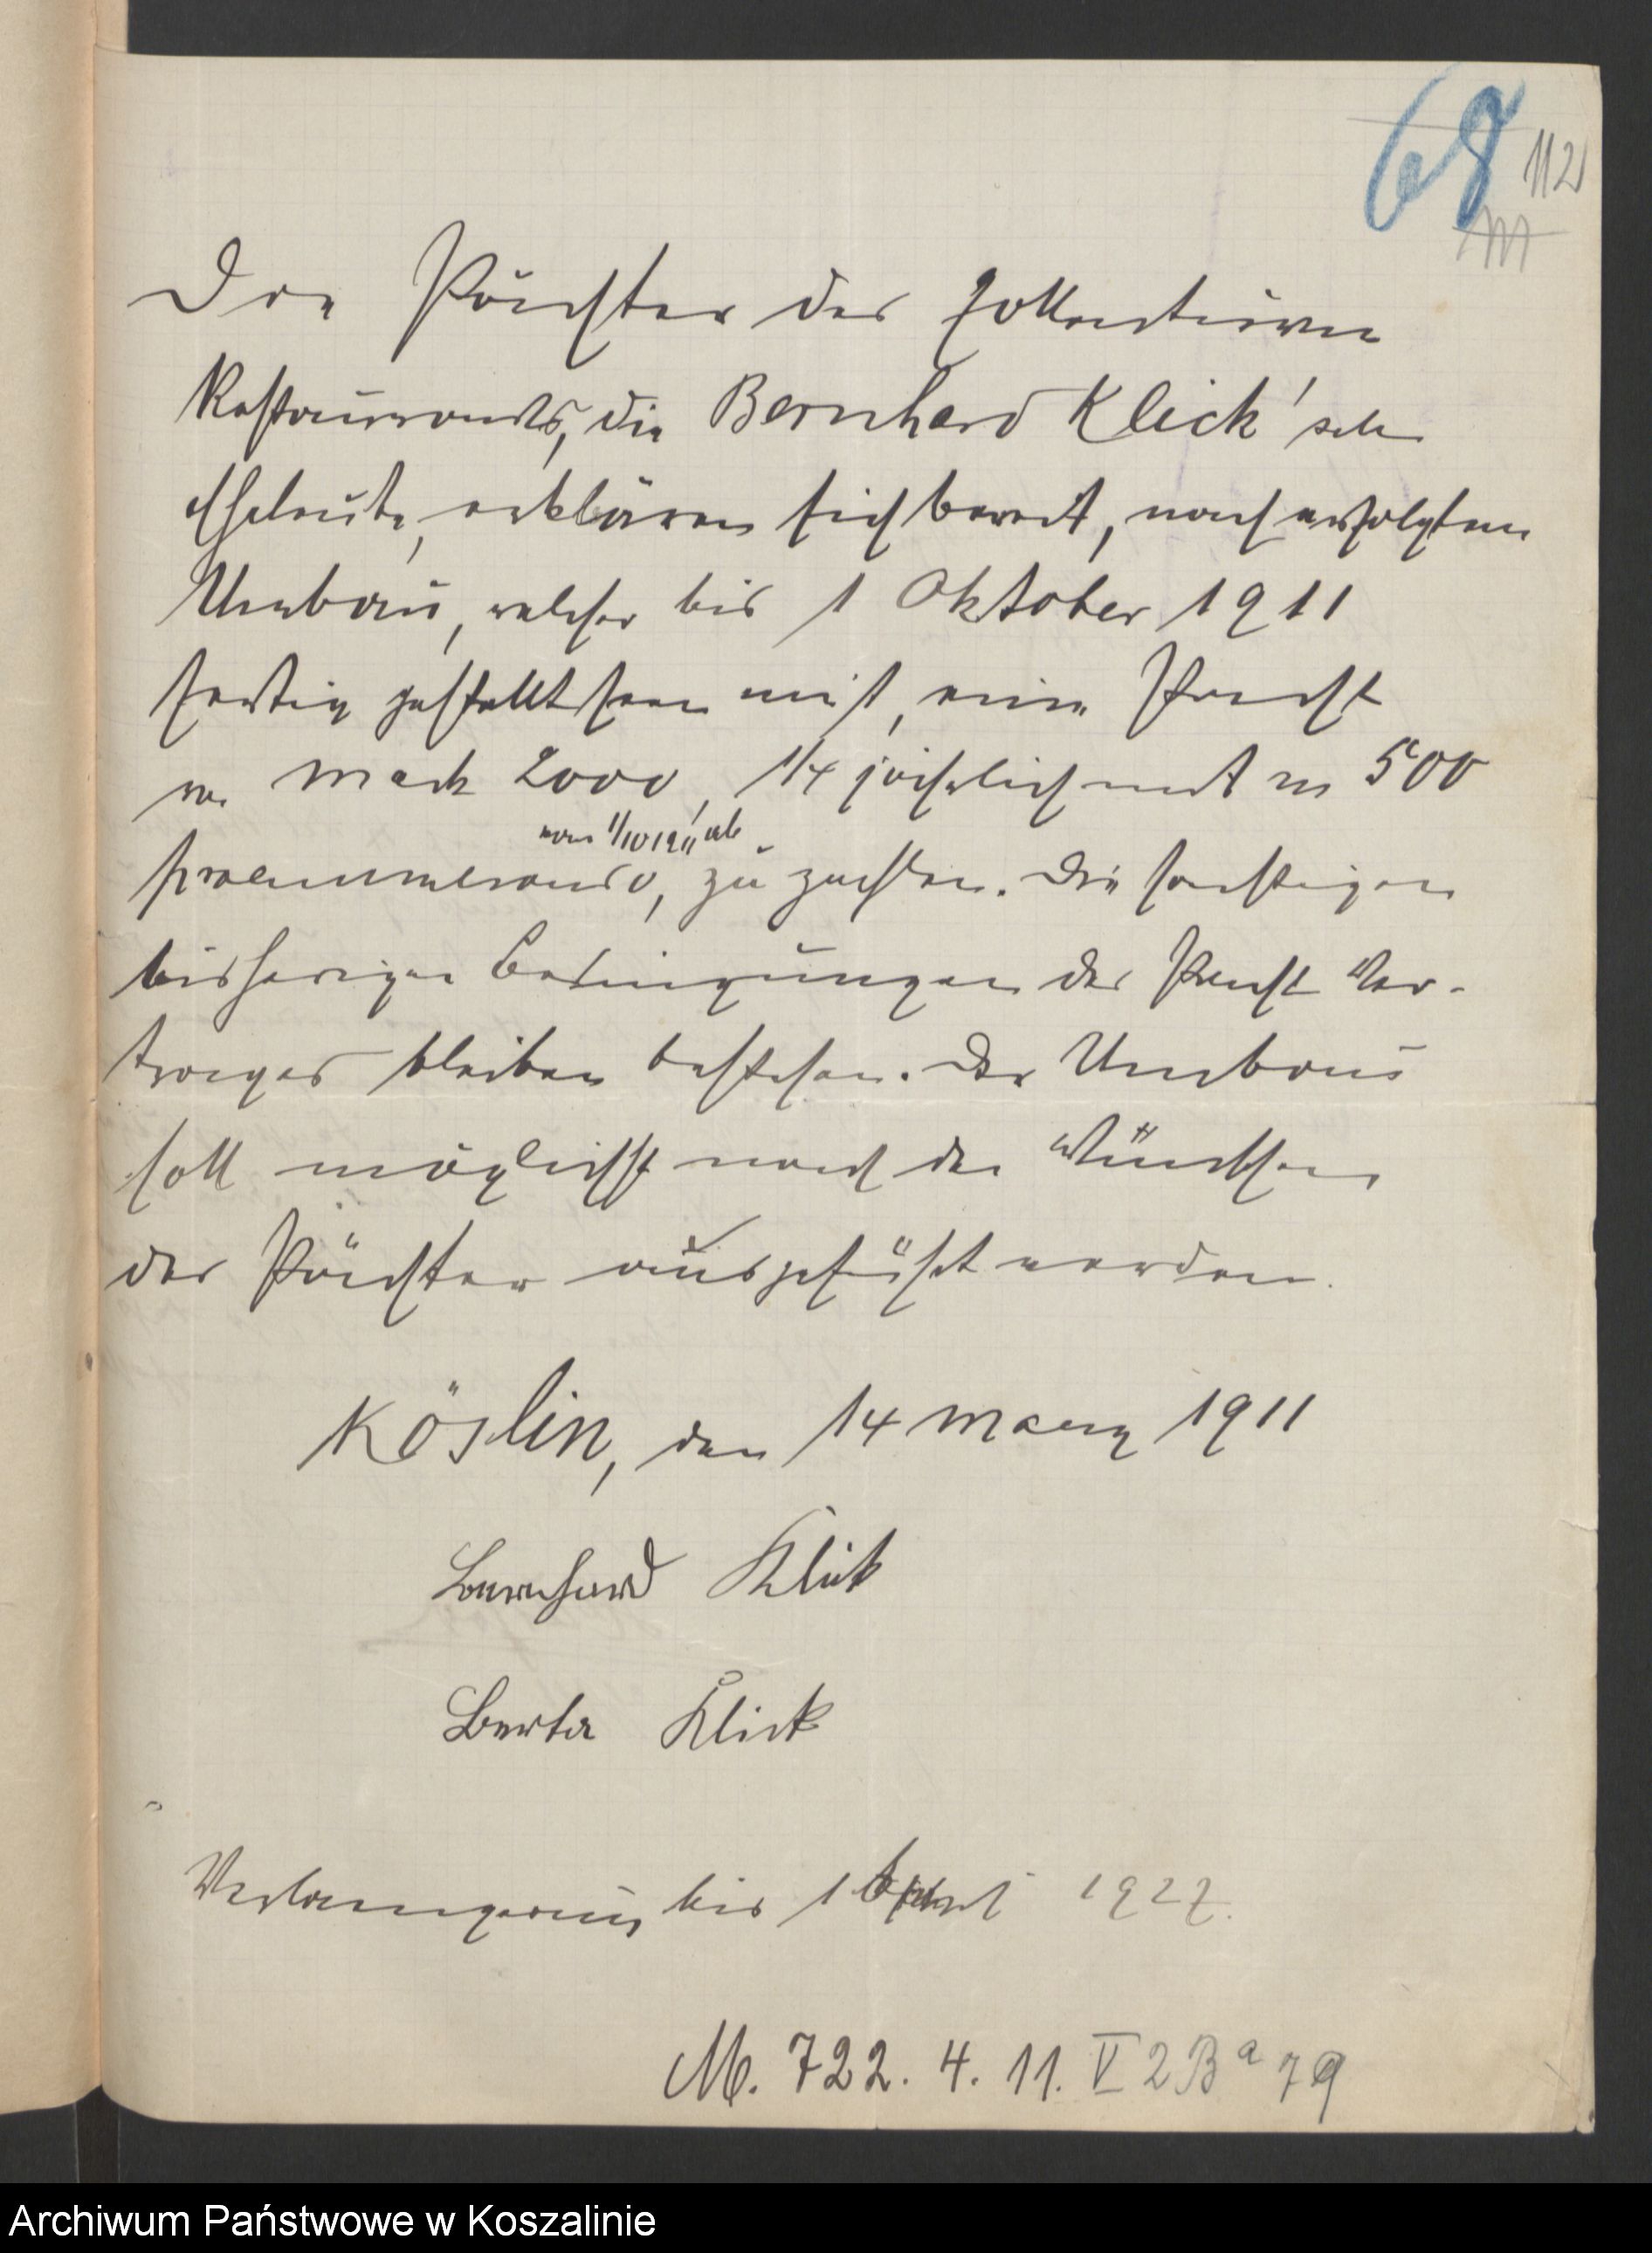 68 112
Die Pächter des Gollenturm
Restaurants, die Bernhard Klick'schen
Eheleute, erklären sich bereit, nach erfolgtem
Umbau, welcher bis 1 Oktober 1911
fertig gestellt sein muß, eine Pacht
von Mark 2000, 1/4 jährlich mit M 500
vom 1/10 1911 ab
praenumerando, zu zahlen. Die sonstigen
bisherigen Bedingungen des Pacht Ver-
trages bleiben bestehen. Der Umbau
soll möglichst nach den Wünschen
der Pächter ausgeführt werden.
Köslin, den 14 Maerz 1911
Bernhard Klick
Berta Klick
Verlaengerung bis 1 1927.
M. 722. 4. 11. V 2 B a 79
Archiwum Państwowe w Koszalinie